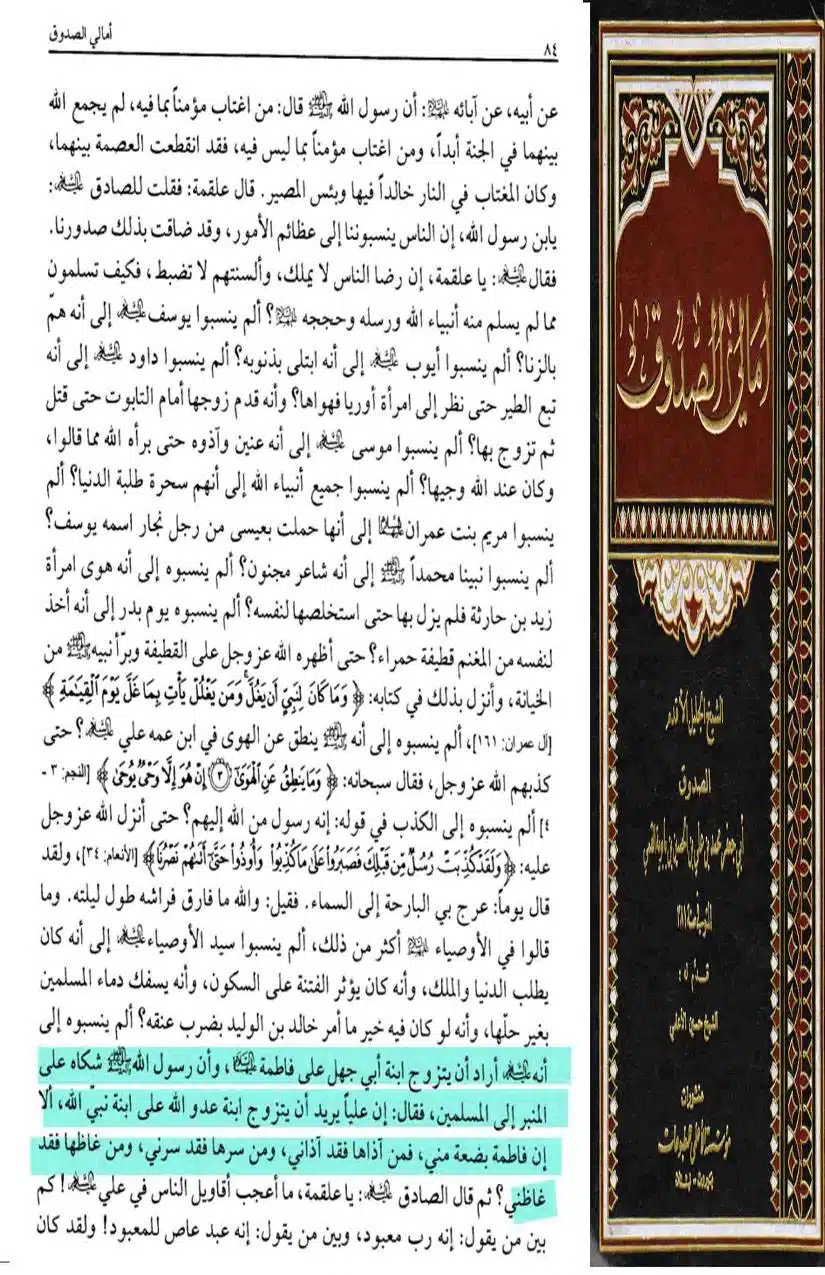 ٨٤
أمالي الصدوق
عن أبيه، عن آبائه عليهم السلام: أن رسول الله ﷺ قال: من اغتاب مؤمناً بما فيه، لم يجمع الله
بينهما في الجنة أبداً، ومن اغتاب مؤمناً بما ليس فيه، فقد انقطعت العصمة بينهما،
وكان المغتاب في النار خالداً فيها وبئس المصير. قال علقمة: فقلت للصادق عليه السلام:
يابن رسول الله، إن الناس ينسبوننا إلى عظائم الأمور، وقد ضاقت بذلك صدورنا.
فقال عليه السلام: يا علقمة، إن رضا الناس لا يملك، وألسنتهم لا تضبط، فكيف تسلمون
مما لم يسلم منه أنبياء الله ورسله وحججه عليهم السلام؟ ألم ينسبوا يوسف عليه السلام إلى أنه همّ
بالزنا؟ ألم ينسبوا أيوب عليه السلام إلى أنه ابتلى بذنوبه؟ ألم ينسبوا داود عليه السلام إلى أنه
تبع الطير حتى نظر إلى امرأة أوريا فهواها؟ وأنه قدم زوجها أمام التابوت حتى قتل
ثم تزوج بها؟ ألم ينسبوا موسى عليه السلام إلى أنه عنين وآذوه حتى برأه الله مما قالوا،
وكان عند الله وجيها؟ ألم ينسبوا جميع أنبياء الله إلى أنهم سحرة طلبة الدنيا؟ ألم
ينسبوا مريم بنت عمران عليها السلام إلى أنها حملت بعيسى من رجل نجار اسمه يوسف؟
ألم ينسبوا نبينا محمداً ﷺ إلى أنه شاعر مجنون؟ ألم ينسبوه إلى أنه هوى امرأة
زيد بن حارثة فلم يزل بها حتى استخلصها لنفسه؟ ألم ينسبوه يوم بدر إلى أنه أخذ
لنفسه من المغنم قطيفة حمراء؟ حتى أظهره الله عز وجل على القطيفة وبرّأ نبيه ﷺ من
الخيانة، وأنزل بذلك في كتابه: ﴿وَمَا كَانَ لِنَبِيٍّ أَن يَغُلَّ وَمَن يَغْلُلْ يَأْتِ بِمَا غَلَّ يَوْمَ الْقِيَٰمَةِ﴾
[آل عمران: ١٦١]، ألم ينسبوه إلى أنه ﷺ ينطق عن الهوى في ابن عمه علي عليه السلام؟ حتى
كذبهم الله عز وجل، فقال سبحانه: ﴿وَمَا يَنطِقُ عَنِ الْهَوَىٰ ۝٣ إِنْ هُوَ إِلَّا وَحْىٌ يُوحَىٰ﴾ [النجم: ٣ -
٤] ألم ينسبوه إلى الكذب في قوله: إنه رسول من الله إليهم؟ حتى أنزل الله عز وجل
عليه: ﴿وَلَقَدْ كُذِّبَتْ رُسُلٌ مِّن قَبْلِكَ فَصَبَرُوا عَلَىٰ مَا كُذِّبُوا وَأُوذُوا حَتَّىٰ أَتَىٰهُمْ نَصْرُنَا﴾ [الأنعام: ٣٤]، ولقد
قال يوماً: عرج بي البارحة إلى السماء. فقيل: والله ما فارق فراشه طول ليلته. وما
قالوا في الأوصياء عليهم السلام أكثر من ذلك، ألم ينسبوا سيد الأوصياء عليه السلام إلى أنه كان
يطلب الدنيا والملك، وأنه كان يؤثر الفتنة على السكون، وأنه يسفك دماء المسلمين
بغير حلّها، وأنه لو كان فيه خير ما أمر خالد بن الوليد بضرب عنقه؟ ألم ينسبوه إلى
أنه عليه السلام أراد أن يتزوج ابنة أبي جهل على فاطمة عليها السلام، وأن رسول الله ﷺ شكاه على
المنبر إلى المسلمين، فقال: إن علياً يريد أن يتزوج ابنة عدو الله على ابنة نبيّ الله، ألا
إن فاطمة بضعة مني، فمن آذاها فقد آذاني، ومن سرها فقد سرني، ومن غاظها فقد
غاظني؟ ثم قال الصادق عليه السلام: يا علقمة، ما أعجب أقاويل الناس في علي عليه السلام! كم
بين من يقول: إنه رب معبود، وبين من يقول: إنه عبد عاص للمعبود! ولقد كان
أمالي الصدوق
الشيخ الجليل الأقدم
الصدوق
أبي جعفر محمد بن علي بن الحسين بن بابويه القمي
المتوفى سنة ٣٨١
قدّم له:
الشيخ حسين الأعلمي
منشورات
مؤسسة الأعلمي للمطبوعات
بيروت - لبنان